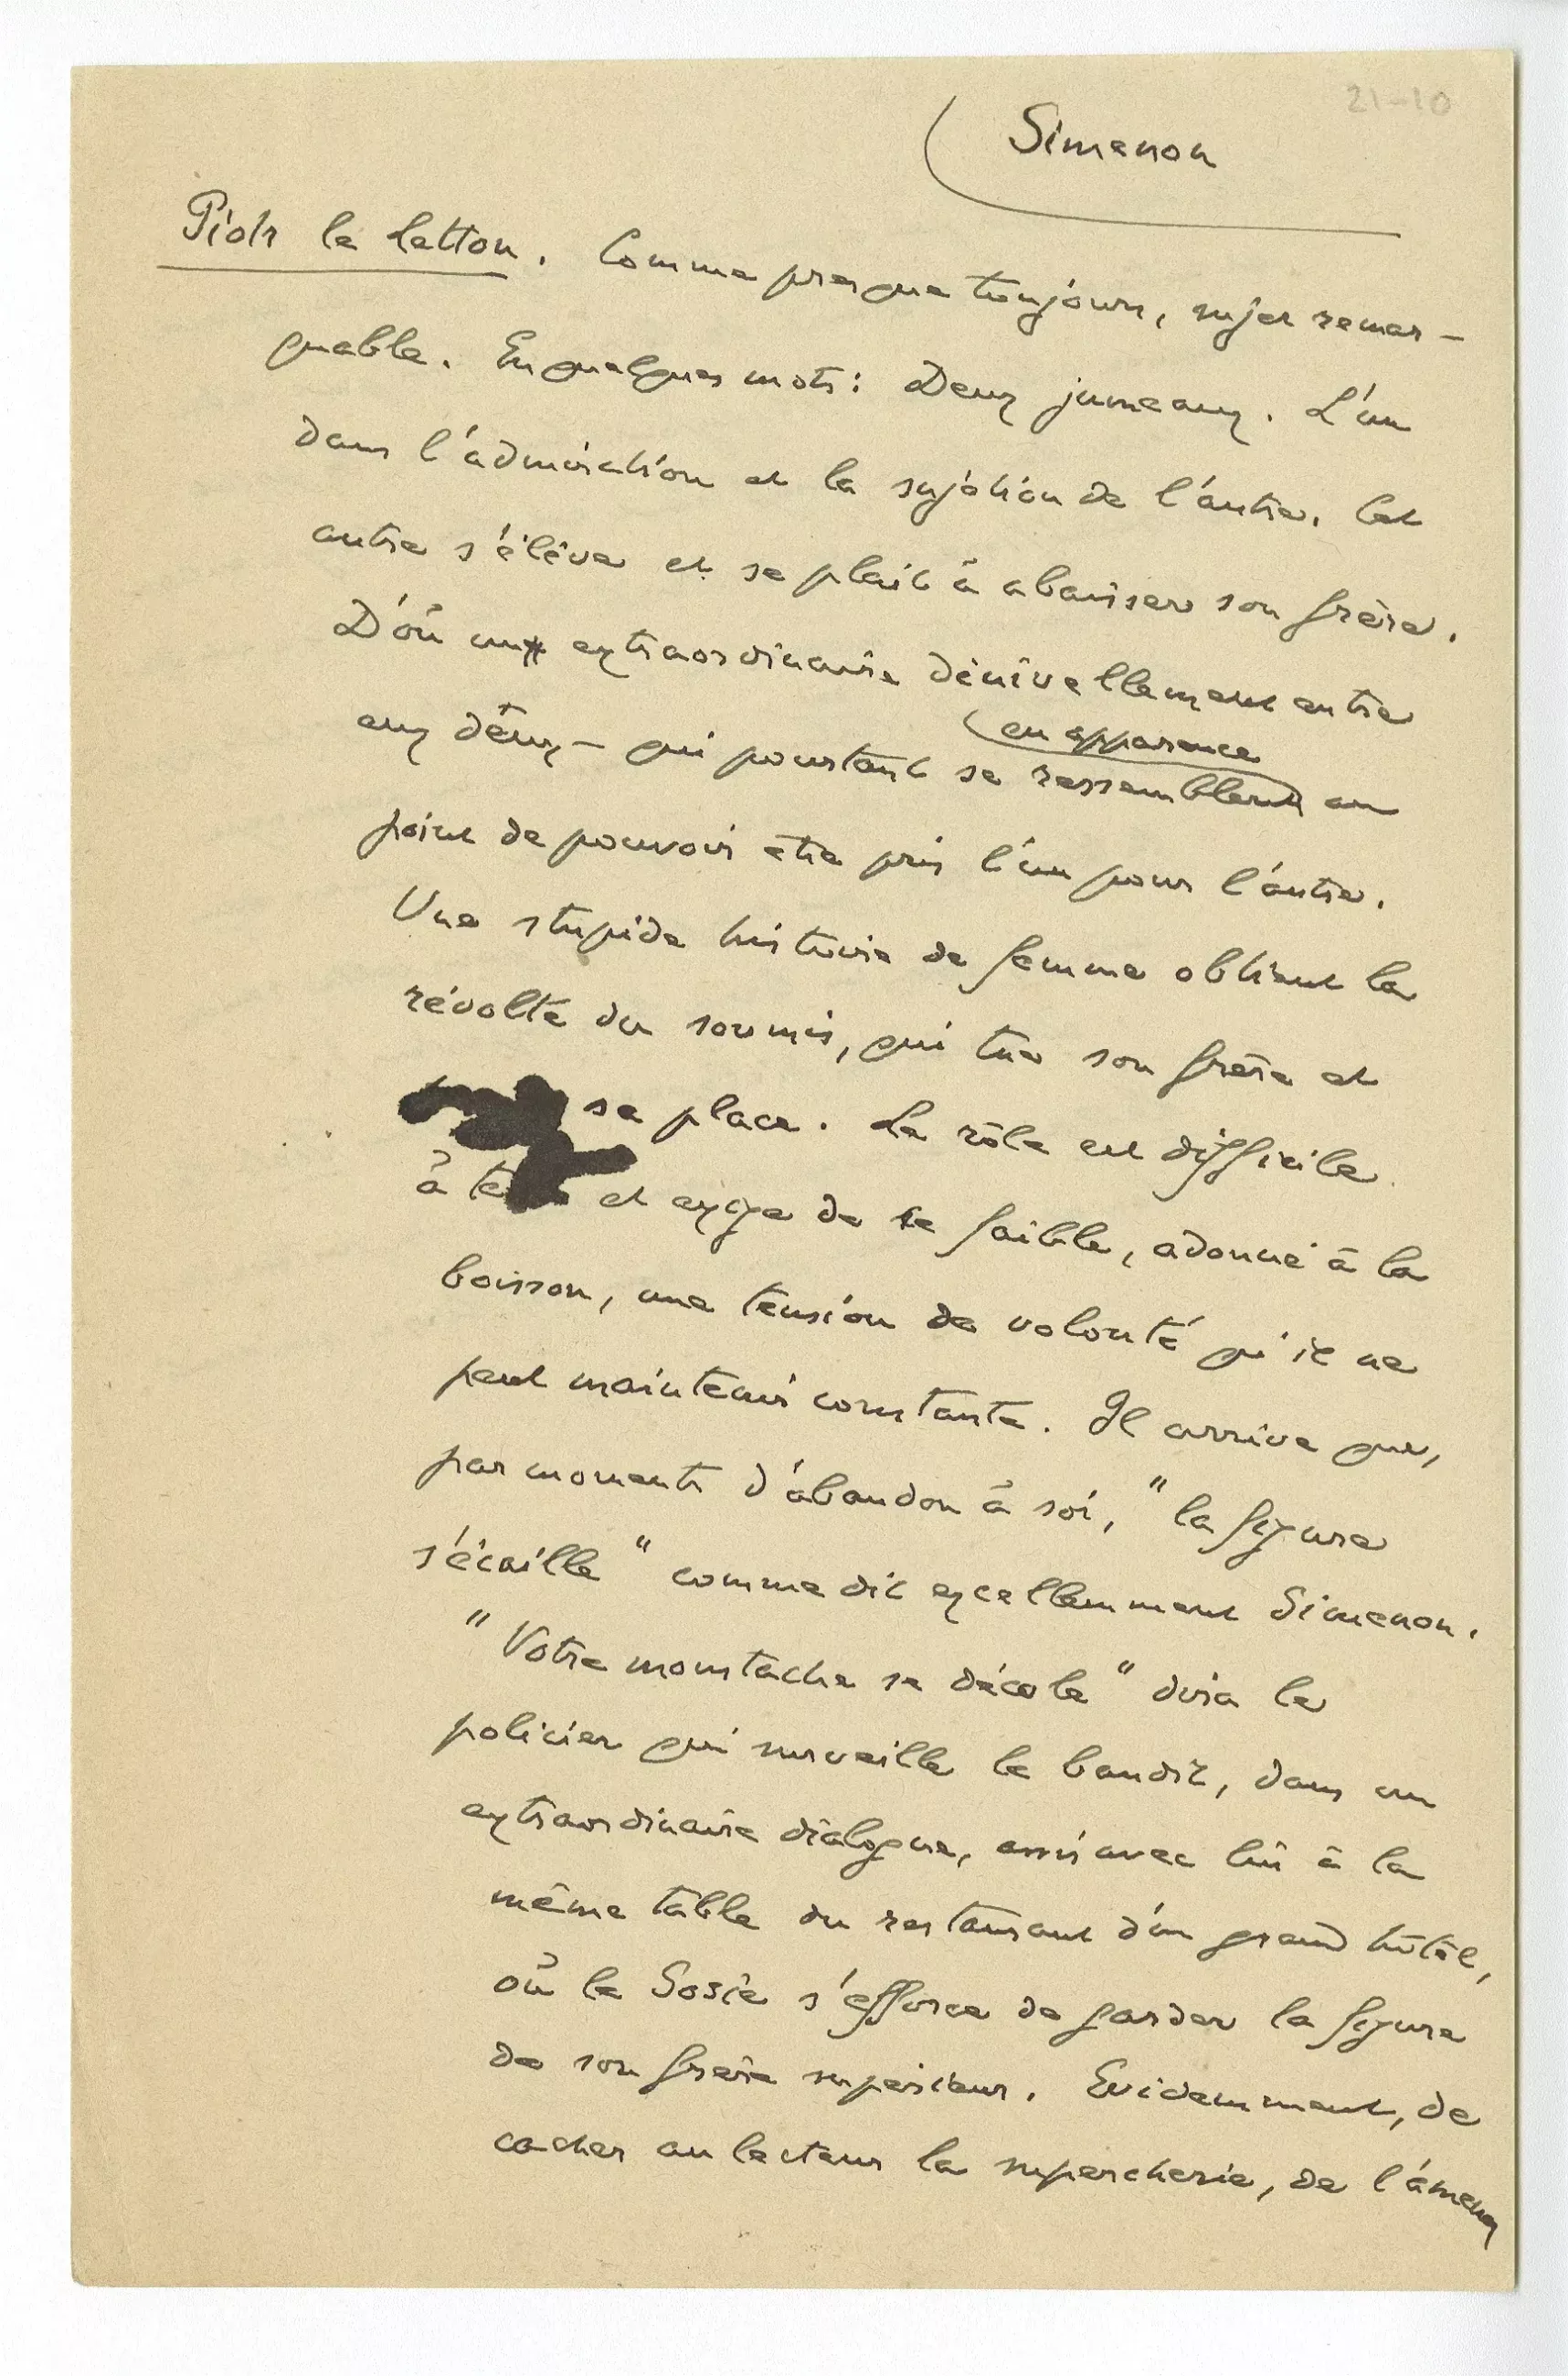 21-10
Simenon
Piotr le letton. Comme presque toujours, sujet remar-
quable. En quelques mots : Deux jumeaux. L'un
dans l'admiration et la sujétion de l'autre. Cet
autre s'élève et se plait à abaisser son frère.
D'où un extraordinaire dénivellement entre
eux deux – qui pourtant se ressemblent au
en apparence
point de pouvoir être pris l'un pour l'autre.
Une stupide histoire de femme obtient la
révolte du soumis, qui tue son frère et
sa place. Le rôle est difficile
à et exige de ce faible, adonné à la
boisson, une tension de volonté qu'il ne
peut maintenir constante. Il arrive que,
par moments d'abandon à soi, "la figure
s'écaille" comme dit excellemment Simenon.
"Votre moustache se décolle" dira le
policier qui surveille le bandit, dans un
extraordinaire dialogue, assis avec lui à la
même table du restaurant d'un grand hôtel,
où le Sosie s'efforce de garder la figure
de son frère supérieur. Evidemment, de
cacher au lecteur la supercherie, de l'amener